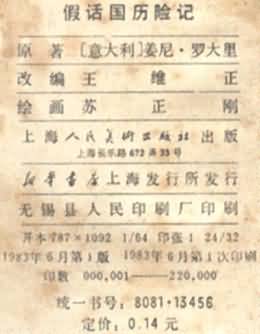 假话国历险记
原 著 [意大利]姜尼·罗大里
改 编 王 维 正
绘 画 苏 正 刚
上海人民美術出版社 出 版
上海长乐路672弄33号
新华書店上海发行所发行
无锡县人民印刷厂印刷
开本787×1092 1/64 印张1 24/32
1983年6月第1版 1983年6月第1次印刷
印数 000,001——220,000
统一书号：8081·13456
定价：0.14元